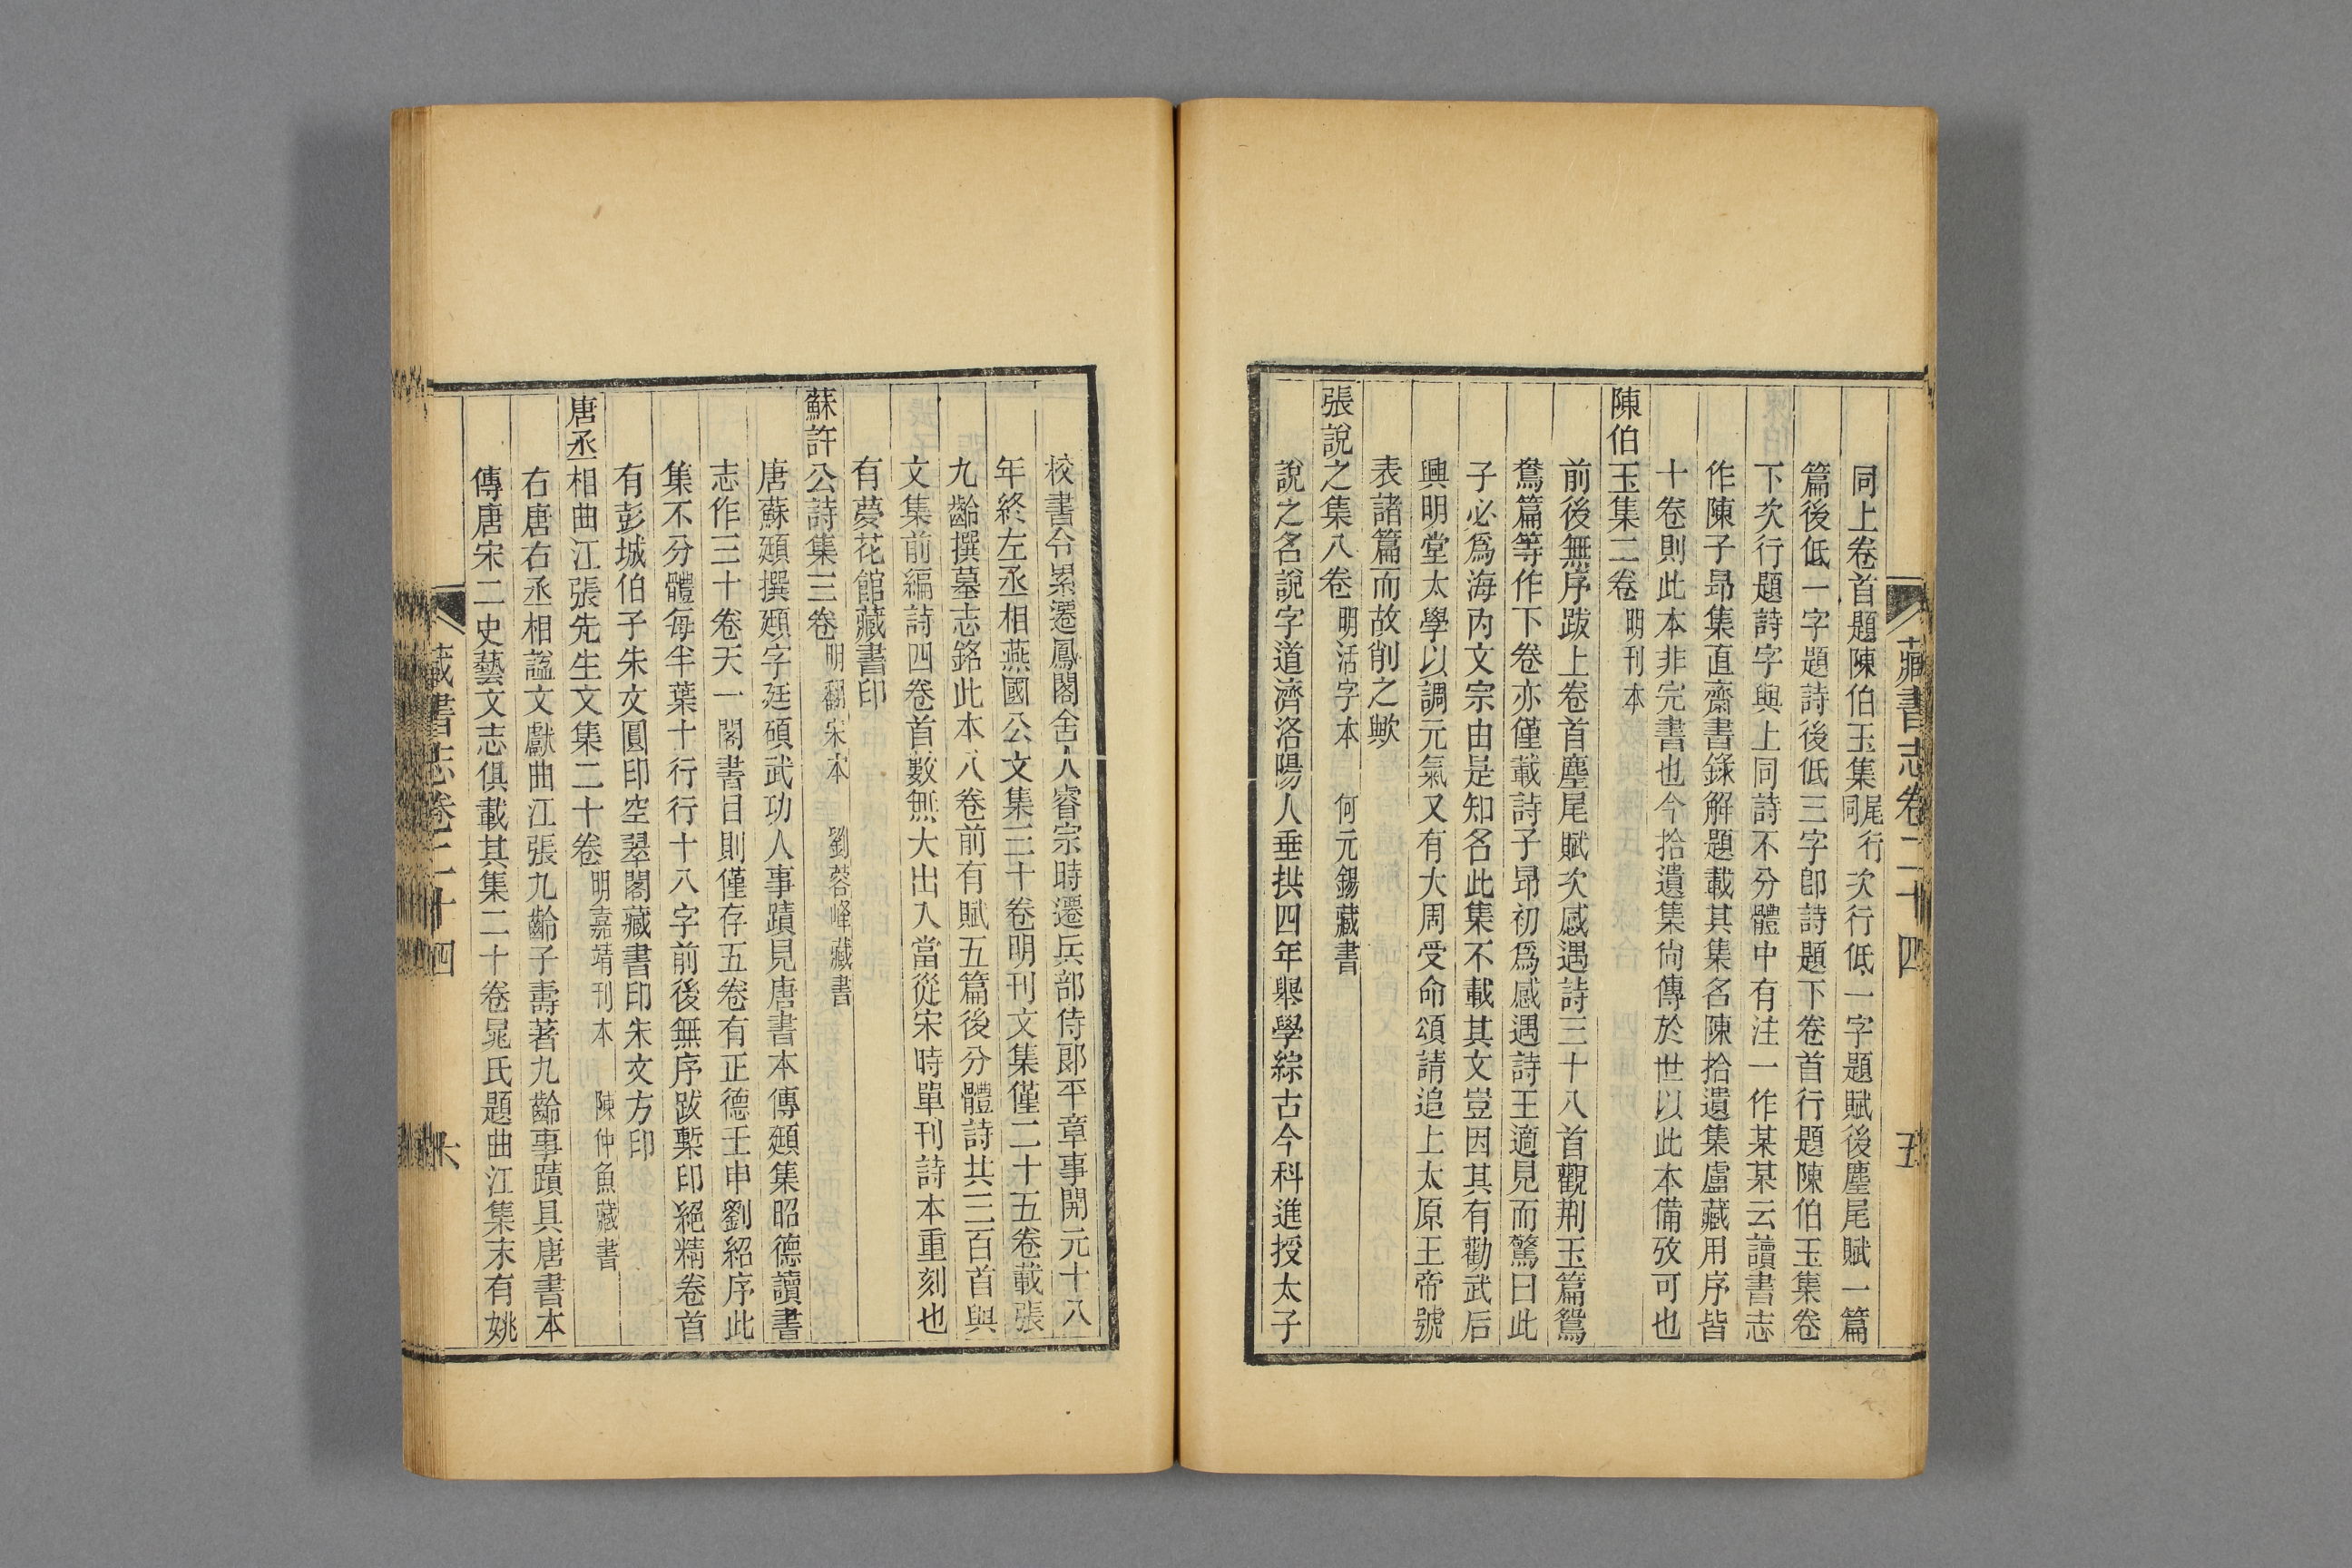 藏書志卷二十四 五
同上卷首題陳伯玉集尾同行次行低一字題賦後塵尾賦一篇
篇後低一字題詩後低三字卽詩題下卷首行題陳伯玉集卷
下次行題詩字與上同詩不分體中有注一作某某云讀書志
作陳子昻集直齋書錄解題載其集名陳拾遺集盧藏用序皆
十卷則此本非完書也今拾遺集尙傳於世以此本備攷可也
陳伯玉集二卷 明刊本
前後無序跋上卷首塵尾賦次感遇詩三十八首觀荆玉篇鴛
鴦篇等作下卷亦僅載詩子昻初爲感遇詩王適見而驚曰此
子必爲海內文宗由是知名此集不載其文豈因其有勸武后
興明堂太學以調元氣又有大周受命頌請追上太原王帝號
表諸篇而故削之歟
張說之集八卷 明活字本 何元錫藏書
說之名說字道濟洛陽人垂拱四年舉學綜古今科進授太子
校書令累遷鳳閣舍人睿宗時遷兵部侍郞平章事開元十八
年終左丞相燕國公文集三十卷明刊文集僅二十五卷載張
九齡撰墓志銘此本八卷前有賦五篇後分體詩共三百首與
文集前編詩四卷首數無大出入當從宋時單刊詩本重刻也
有夢花館藏書印
蘇許公詩集三卷 明翻宋本 劉蓉峰藏書
唐蘇頲撰頲字廷碩武功人事蹟見唐書本傳頲集昭德讀書
志作三十卷天一閣書目則僅存五卷有正德壬申劉紹序此
集不分體每半葉十行行十八字前後無序跋槧印絕精卷首
有彭城伯子朱文圓印空翠閣藏書印朱文方印
唐丞相曲江張先生文集二十卷 明嘉靖刊本 陳仲魚藏書
右唐右丞相謚文獻曲江張九齡子壽著九齡事蹟具唐書本
傳唐宋二史藝文志俱載其集二十卷晁氏題曲江集末有姚
藏書志卷二十四 六